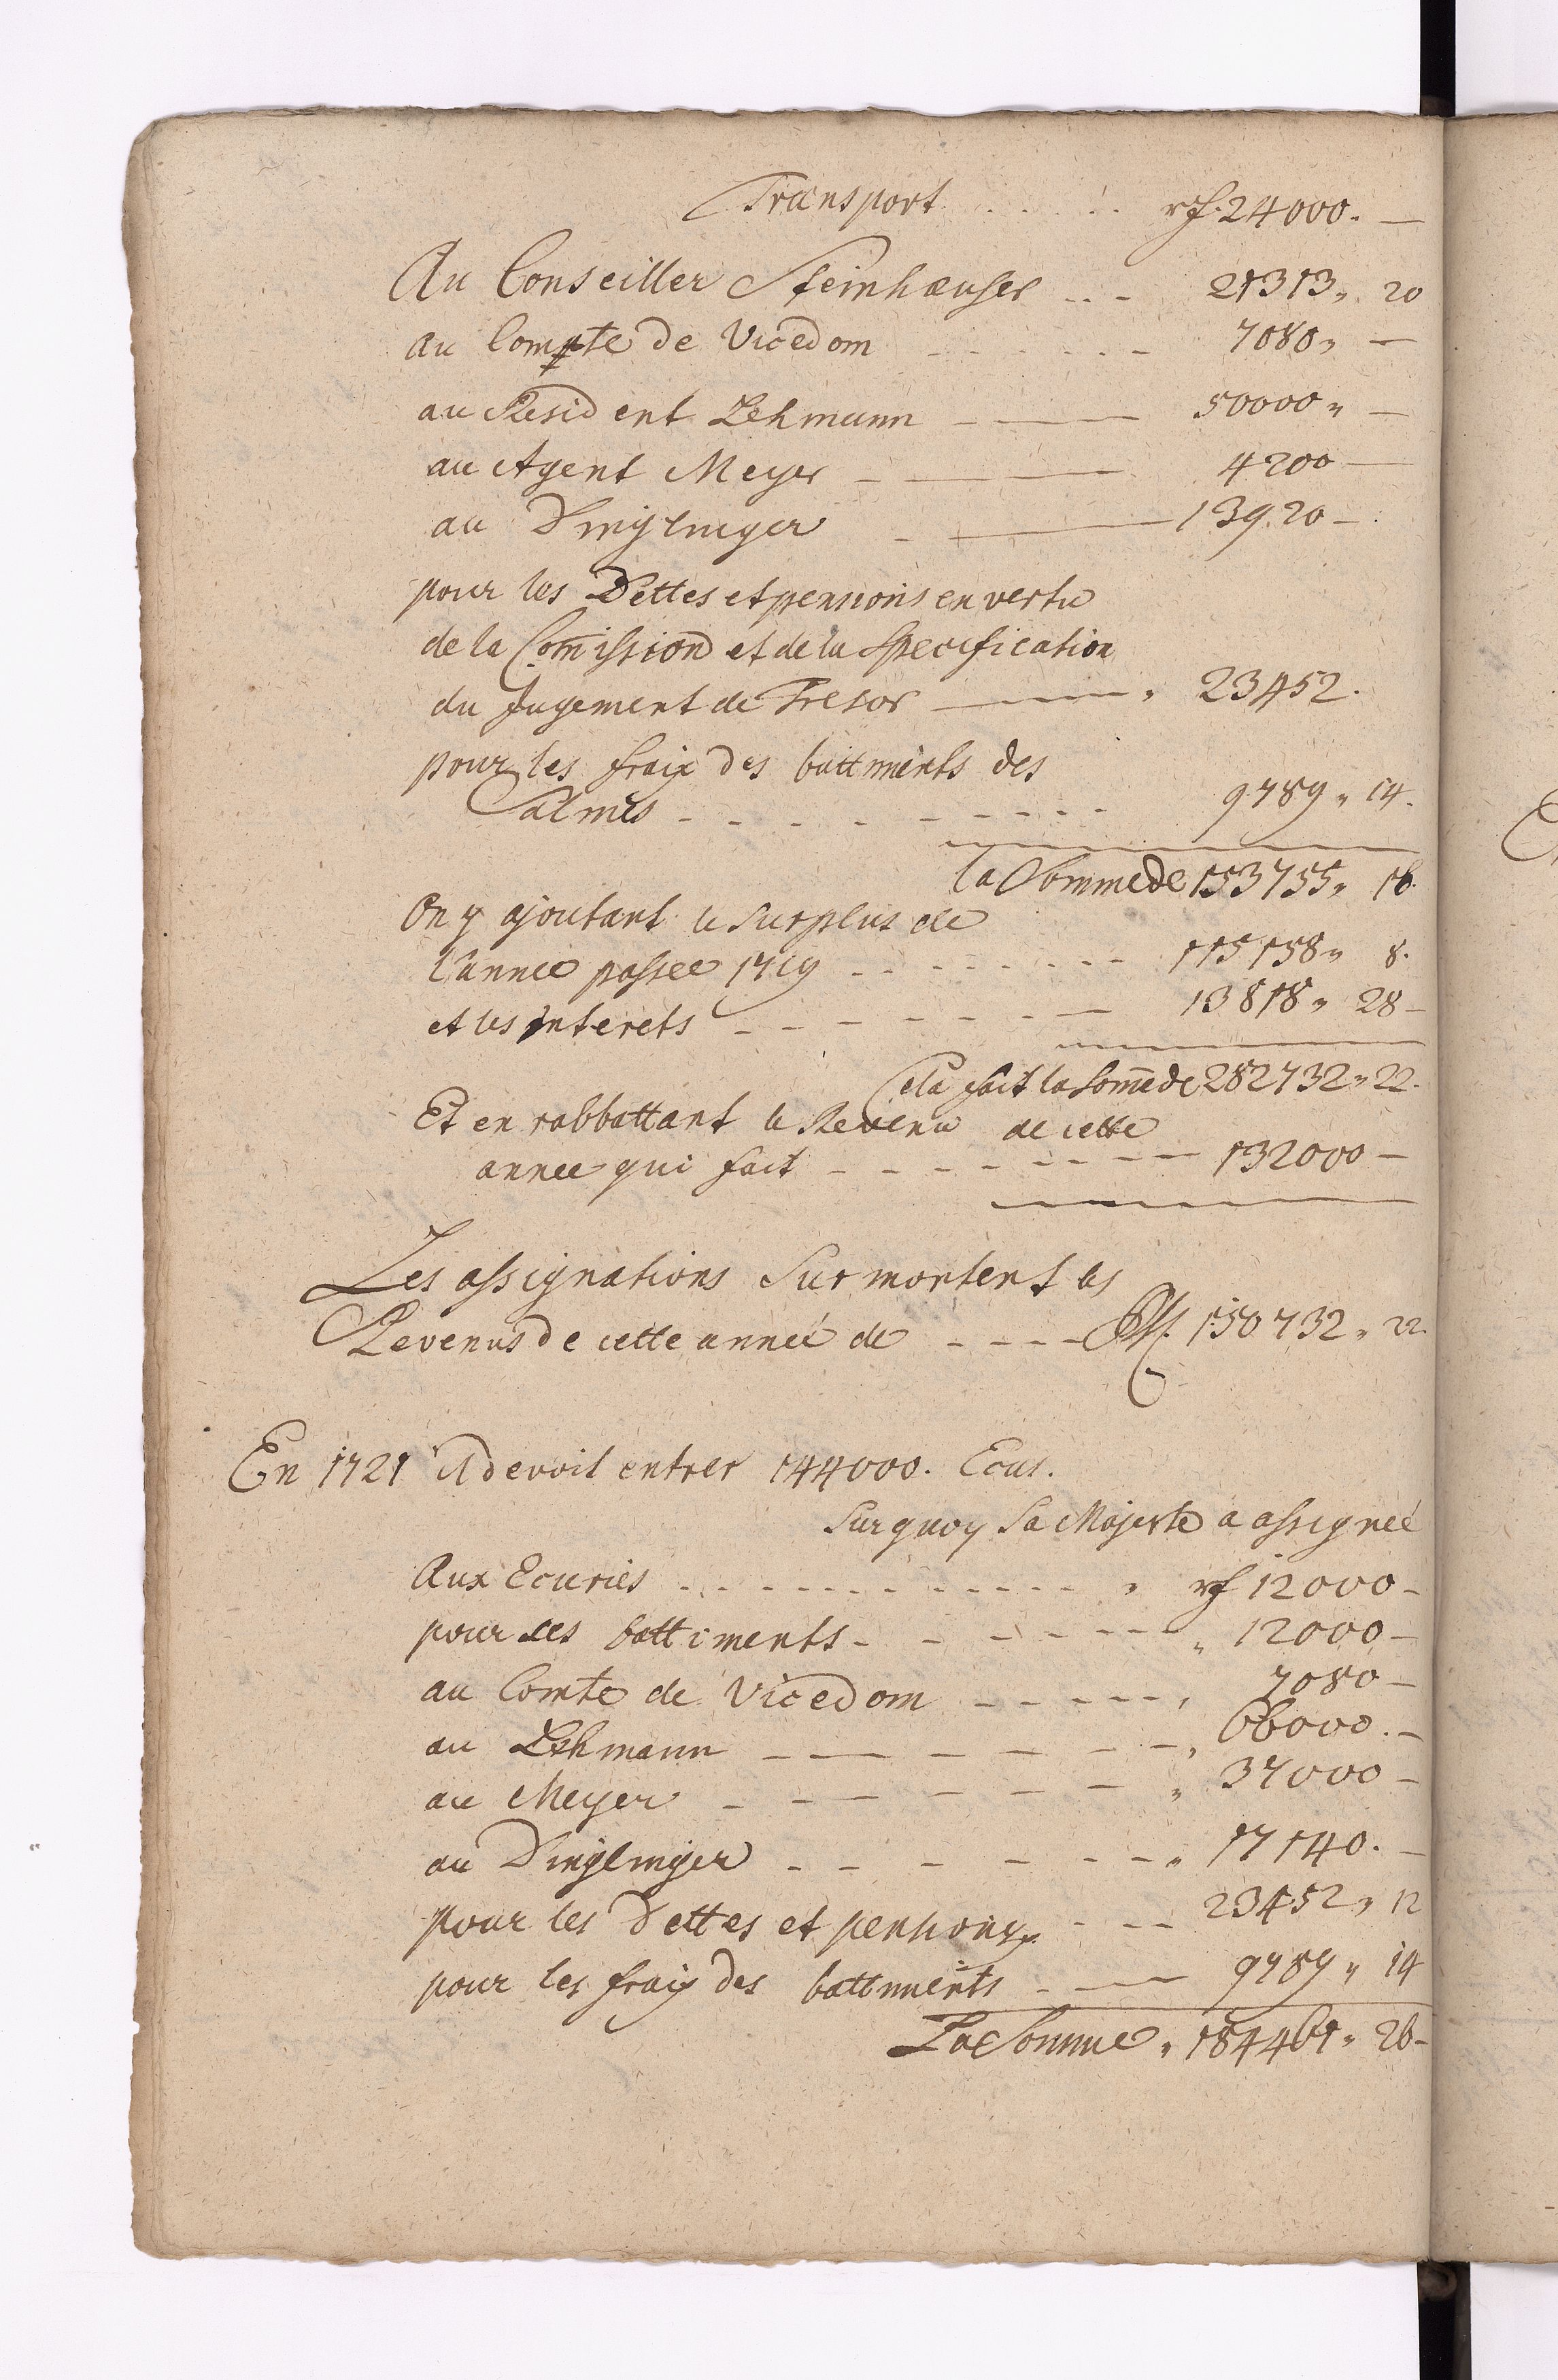 Transport . . . . . rf. 24000. —
Au Conseiller Steinhæuser .. - 21313 „ 20
au Compte de Vicedom - - - - - - 7080 „ —
au Resident Lehmann - —— 50000 „ —
au Agent Meyer - —— 4200 —
au Dinglinger - —— 13920 —
pour les Dettes et pensions en vertu
de la Com̄ission et de la Specification
du Jugement de Tresor —— „ 23452.
pour les fraix des battiments des
Palmes - - - - - - - - 9789 „ 14.
la Somme de 153755 „ 16.
On y ajoutant le surplus de
l'année passée 1719 - - - - - - - - 115158 „ 8.
et les interets - - - - - - — 13818 „ 28 -
Cela fait la Som̄e de 282732 „ 22.
Et en rabbattant le Revenu de cette
année qui fait - - - - - - - 132000 —
Les assignations surmontent les
Revenus de cette année de - - - - 150732 „ 22.
En 1721 il devoit entrer 144000. Ecus.
Surquoy Sa Majesté a assigneé
Aux Ecuries - - - - - - - - - - „ rf 12000 -
pour les battiments - - - - - - - „ 12000 -
au Comte de Vicedom - - - - - , 7080 -
au Lehmann - — - - - - - „ 66000. -
au Meyer - - - - - - „ 37000 -
au Dinglinger - - - - - - - „ 17140. -
pour les Dettes et pensions - - - 23452 „ 12
pour les fraix des battiments - — 9789 „ 14
La Somme „ 184461 „ 26 -